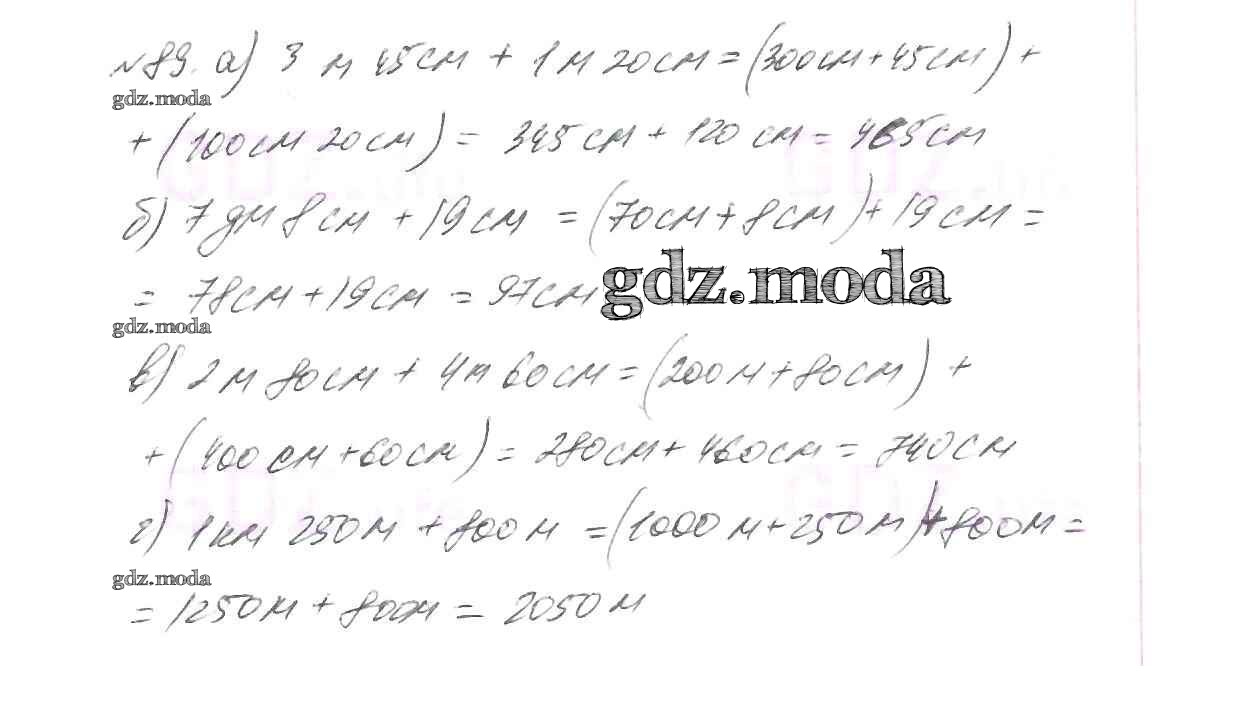 №89. а) 3 м 45см + 1м 20см = (300см + 45см) +
gdz.moda
+ (100см 20см) = 345см + 120 см = 465см
б) 7 дм 8см + 19см = (70см + 8см) + 19см =
= 78см + 19см = 97см gdz.moda
gdz.moda
в) 2м 80см + 4м 60см = (200м + 80см) +
+ (400 см + 60см) = 280см + 460см = 740см
г) 1км 250м + 800м = (1000 м + 250м) + 800м =
gdz.moda
= 1250м + 800м = 2050м